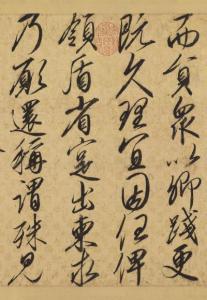 而貟衆以卿踐更
既久理宜因任俾
領盾省寔出柬求
乃願還稱謂殊見